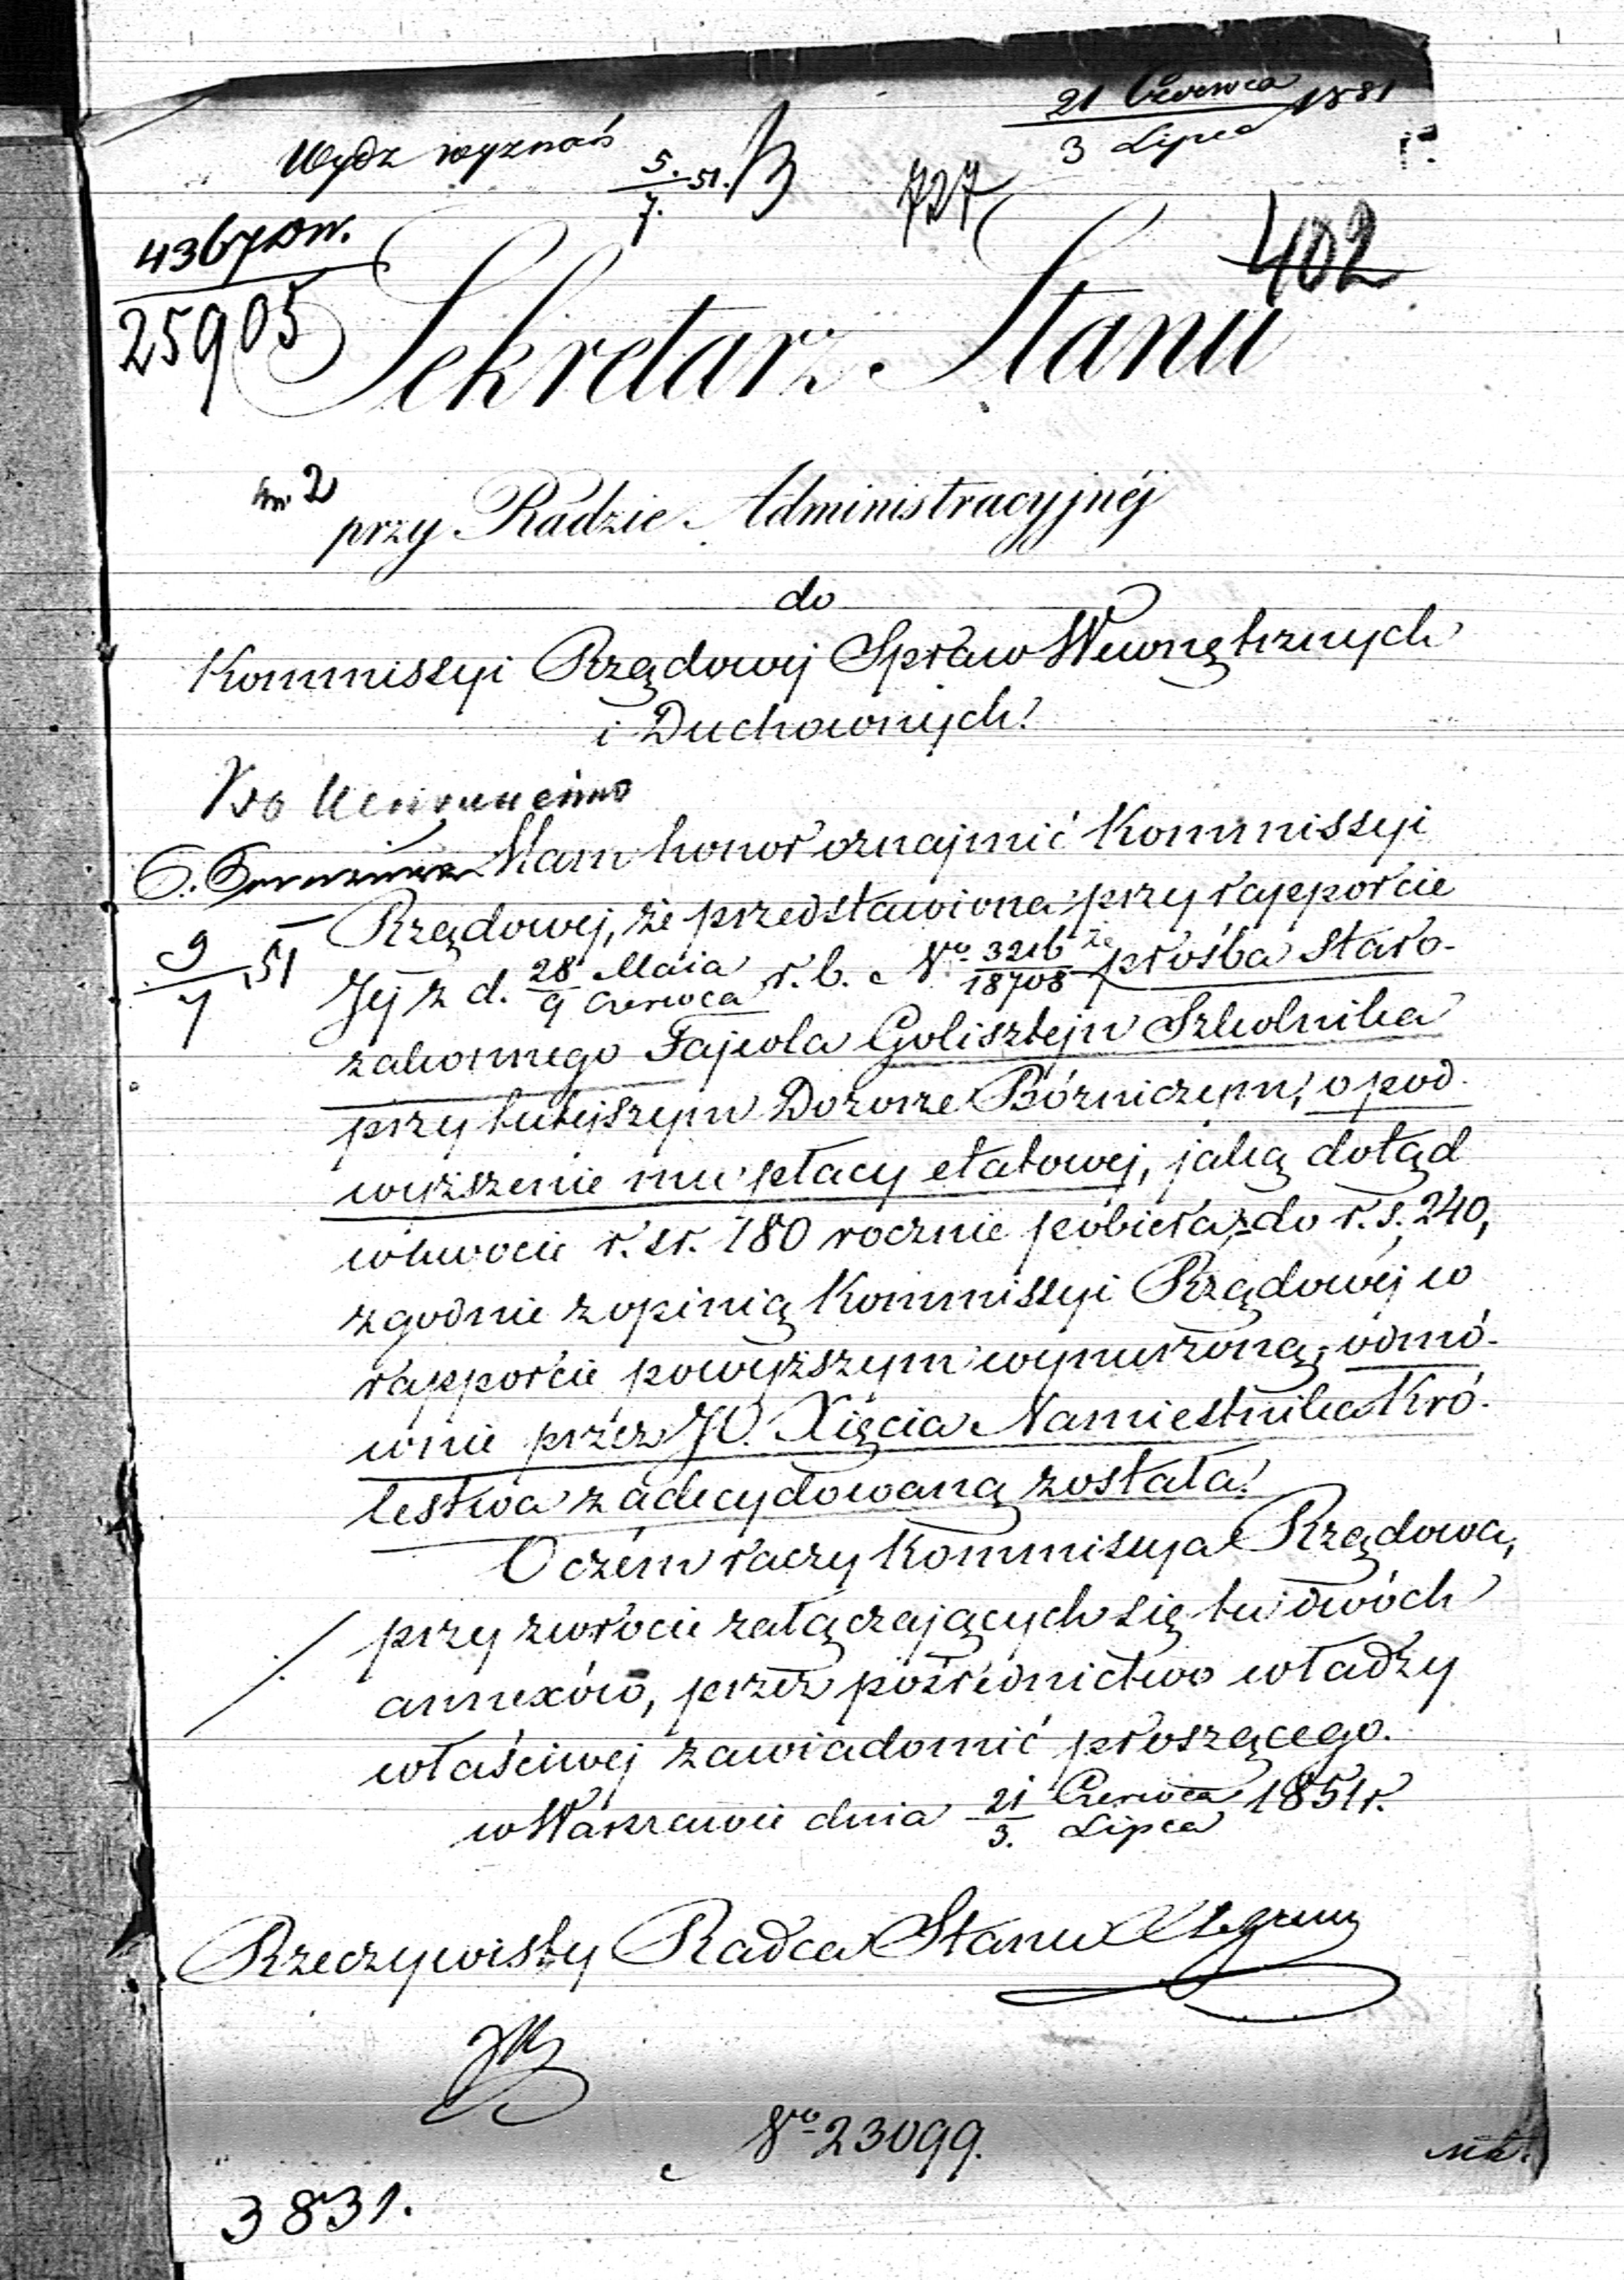 21 Czerwca 1851
3 Lipca
Wydz wyznań
5. 51.
7.
727
402
4367
25905
Sekretarz Stanu
2
przy Radzie Administracyjnéj
do
Kommissyi Rządowej Spraw Wewnętrznych
i Duchownych.
Mam honor oznajmić Kommissyi
9 51
7
Rządowej, że przedstawiona przy rapporcie
Jej z d. 28 Maia / 9 Czerwca r. b. Nro 3216 / 18708 prośba staro-
zakonnego Fajwla Golisztejn Szkolnika
przy tutejszym Dozorze Bóżniczym, o pod-
wyższenie mu płacy etatowej, jaką dotąd
w kwocie r. sr. 180 rocznie pobiera, do r. s. 240,
zgodnie z opinią Kommissyi Rządowej w
rapporcie powyższym wynurzoną, odmó-
wnie przez JO. Xięcia Namiestnika Kró-
lestwa zadecydowaną została.
O czém raczy Kommissya Rządowa,
przy zwrocie załączających się tu dwóch
annexów, przez pośrednictwo władzy
właściwej zawiadomić proszącego.
w Warszawie dnia 21 Czerwca / 3. Lipca 1851 r.
Rzeczywisty Radca Stanu
Nro 23099.
3831.